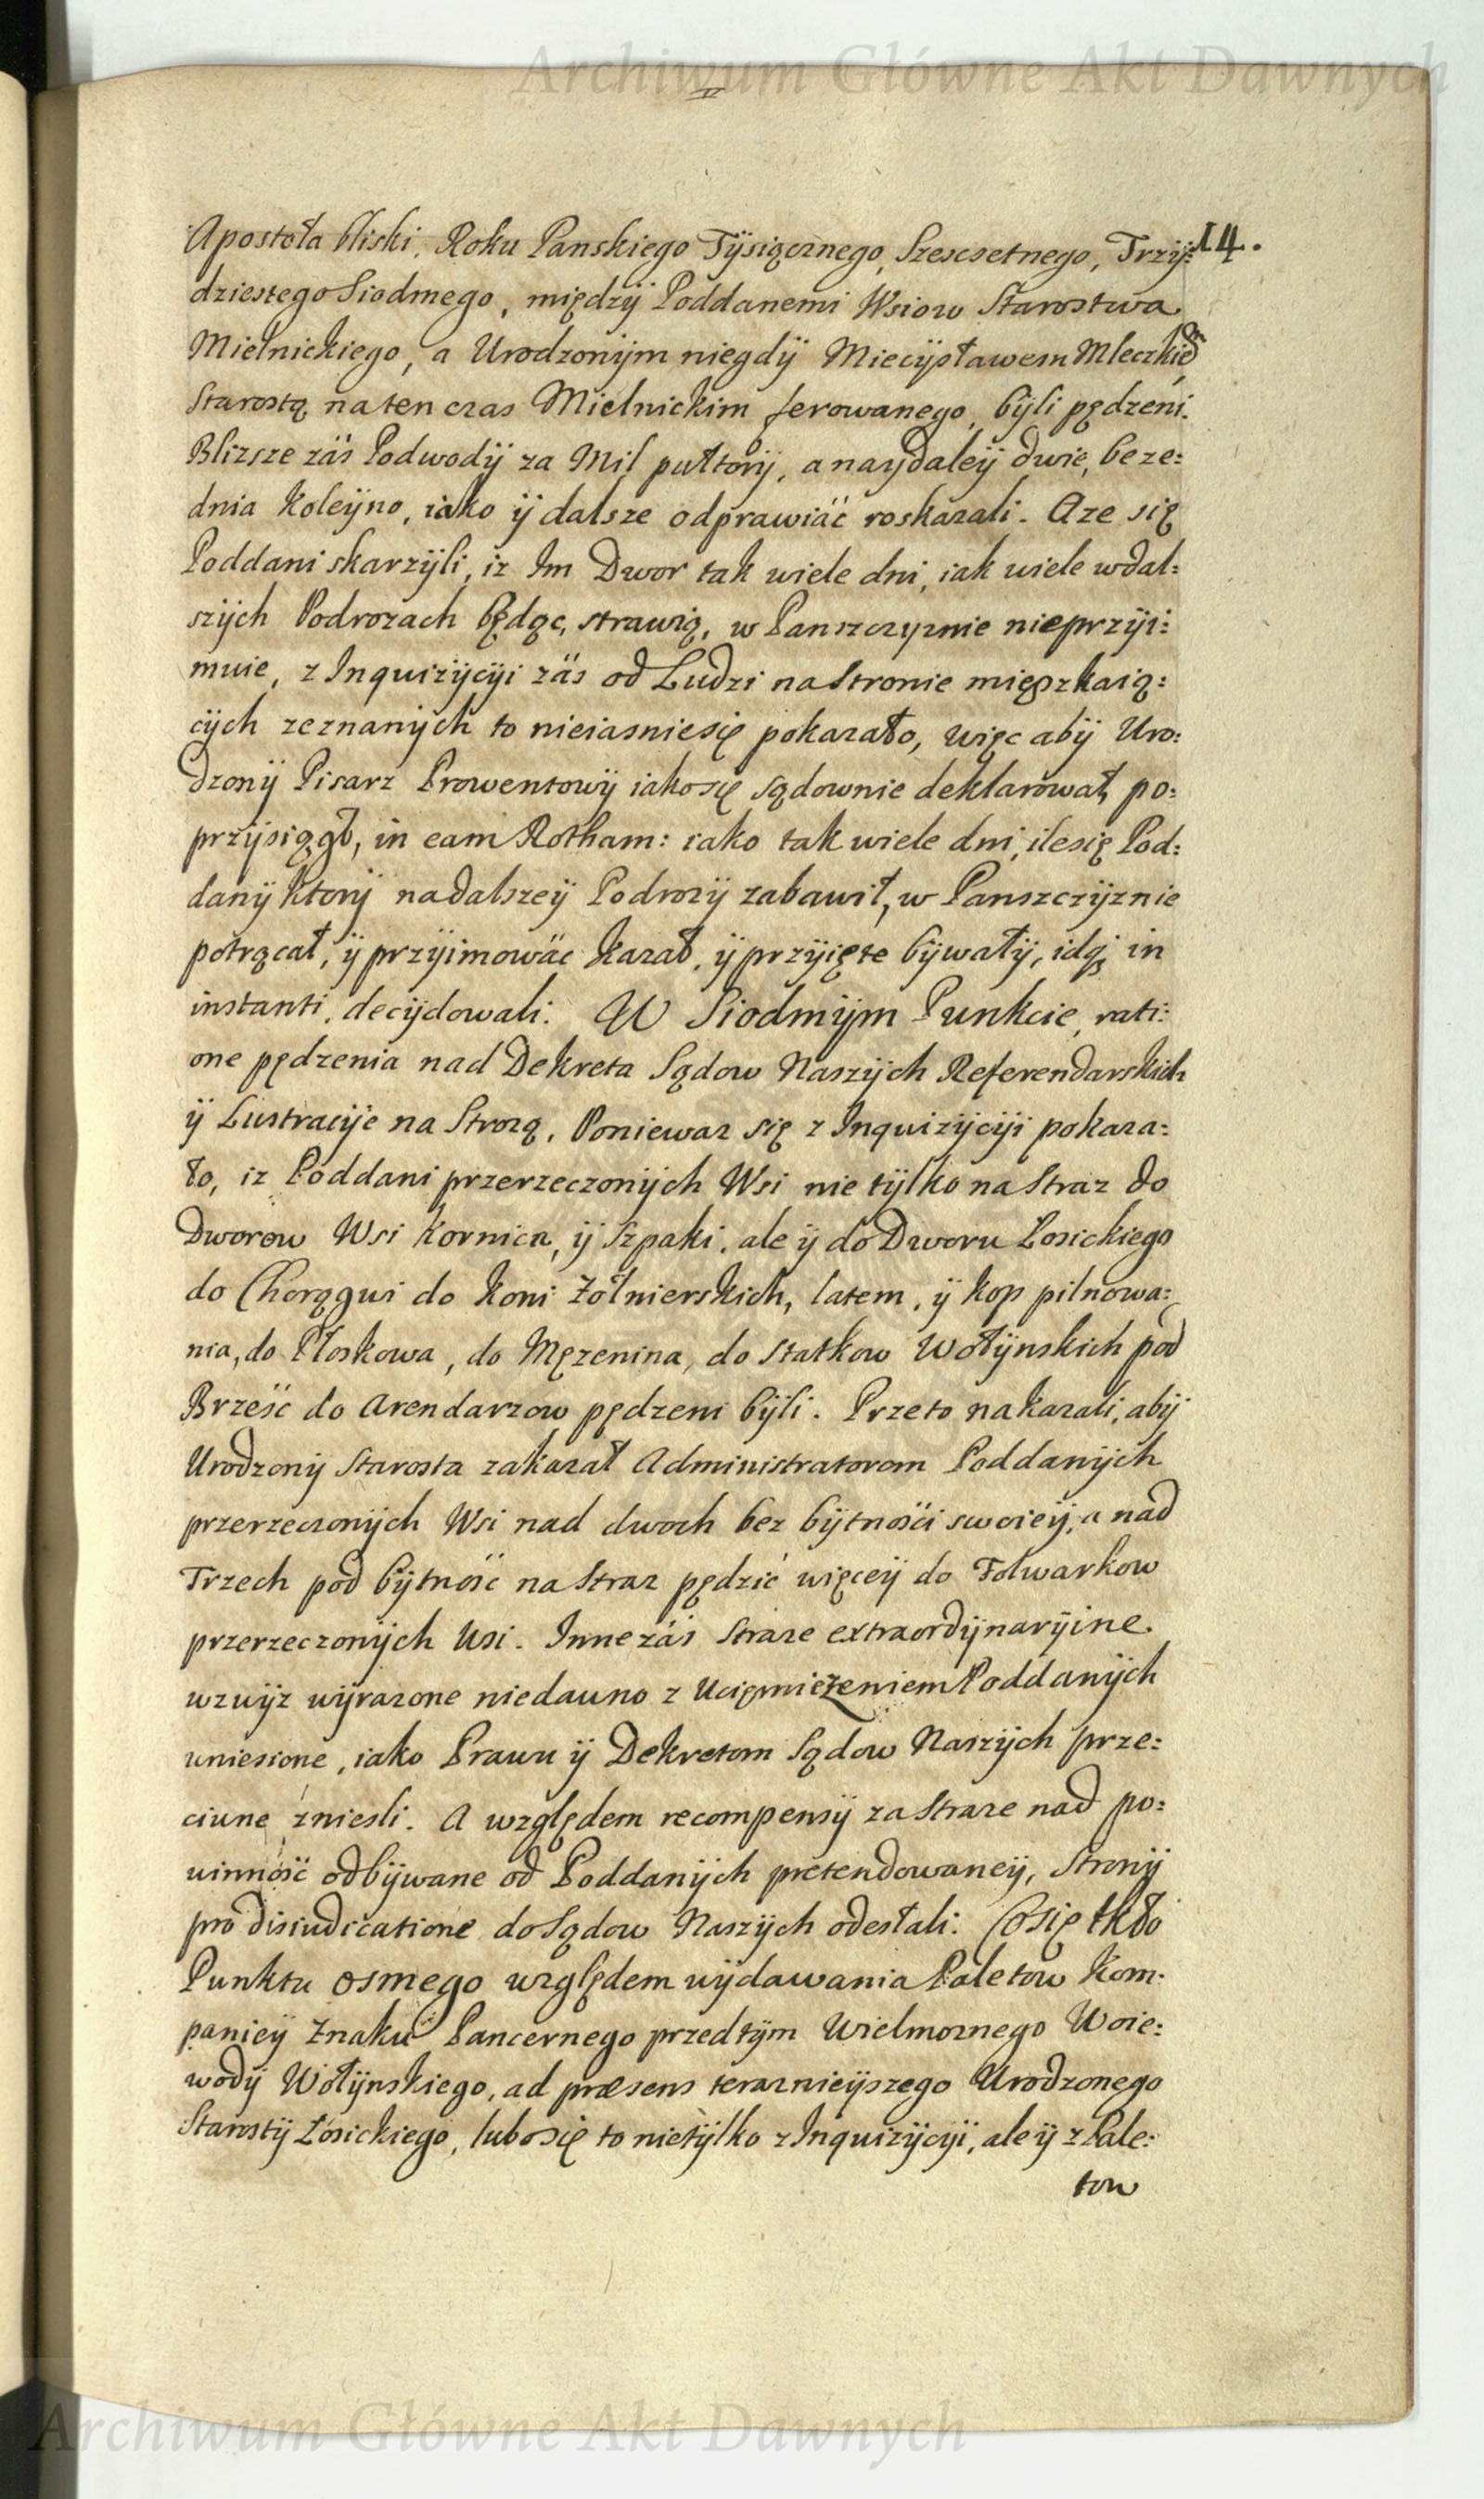 Archiwum Główne Akt Dawnych
14.
Apostoła bliski, Roku Panskiego Tÿsiącznego, Szescsetnego, Trzÿ:
dziestego Siodmego, międzÿ Poddanemi Wsiow Starostwa
Mielnickiego, a Urodzonÿm niegdÿ Miecÿsławem Mleczkiem
Starostą na ten czas Mielnickim ferowanego, bÿli pędzeni.
Blizsze zäs Podwodÿ za Mil pułtorÿ, a naÿdaleÿ dwie, beze:
dnia koleÿno, iako ÿ dalsze odprawiäć roskazali. Aze się
Poddani skarzÿli, iz Im Dwor tak wiele dni, iak wiele w dal:
szÿch Podrozach będąc, strawią, w Panszczyznie nieprzÿi:
muie, z Inquizÿcÿi zäs od Ludzi na Stronie mięszkaią:
cÿch zeznanÿch to nieiasniesię pokazało, więc abÿ Uro:
dzonÿ Pisarz Prowentowÿ iakosię sądownie deklarował, po:
przÿsiągł, in eam Rotham: iako tak wiele dni, ilesię Pod:
danÿ ktorÿ na dalszeÿ Podrozÿ zabawił, w Panszczÿznie
potrącał, ÿ przÿimowäc kazał, ÿ przÿięte bÿwałÿ, idą in
instanti, decÿdowali. W Siodmÿm Punkcie, rati:
one pędzenia nad Dekreta Sądow Naszÿch Referendarskich
ÿ Lustracÿie na Strozą, Poniewaz się z Inquizÿcÿi pokaza:
ło, iz Poddani przerzeczonÿch Wsi nie tÿlko na Straz do
Dworow Wsi Kornica, ÿ Szpaki, ale ÿ do Dworu Łosickiego
do Chorągwi do koni Żołnierskich, latem, ÿ kop pilnowa:
nia, do Płoskowa, do Męzenina, do Statkow Wołÿnskich pod
Brześć do Arendarzow pędzeni bÿli. Przeto nakazali, abÿ
Urodzonÿ Starosta zakazał Administratorom Poddanÿch
przerzeczonÿch Wsi nad dwoch bez bÿtnośći swoieÿ, a nad
Trzech pod bÿtność na Straz pędzić więceÿ do Folwarkow
przerzeczonÿch Wsi. Inne zäs Straze extraordÿnarÿine
wzwÿz wÿrazone niedawno z Ucięmieżeniem Poddanÿch
uniesione, iako Prawu ÿ Dekretom Sądow Naszÿch prze:
ciwne zniesli. A względem recompensÿ za Straze nad po:
winność odbÿwane od Poddanÿch pretendowaneÿ, Stronÿ
pro disiudicatione do Sądow Naszÿch odesłali. Co się tkło
Punktu osmego względem wÿdawania Paletow Kom:
panieÿ Znaku Pancernego przedtÿm Wielmoznego Woie:
wodÿ Wołÿnskiego, ad præsens teraznieÿszego Urodzonego
Starostÿ Łosickiego, lubosię to nietÿlko z Inquizÿcÿi, ale ÿ z Pale:
tow
Archiwum Główne Akt Dawnych